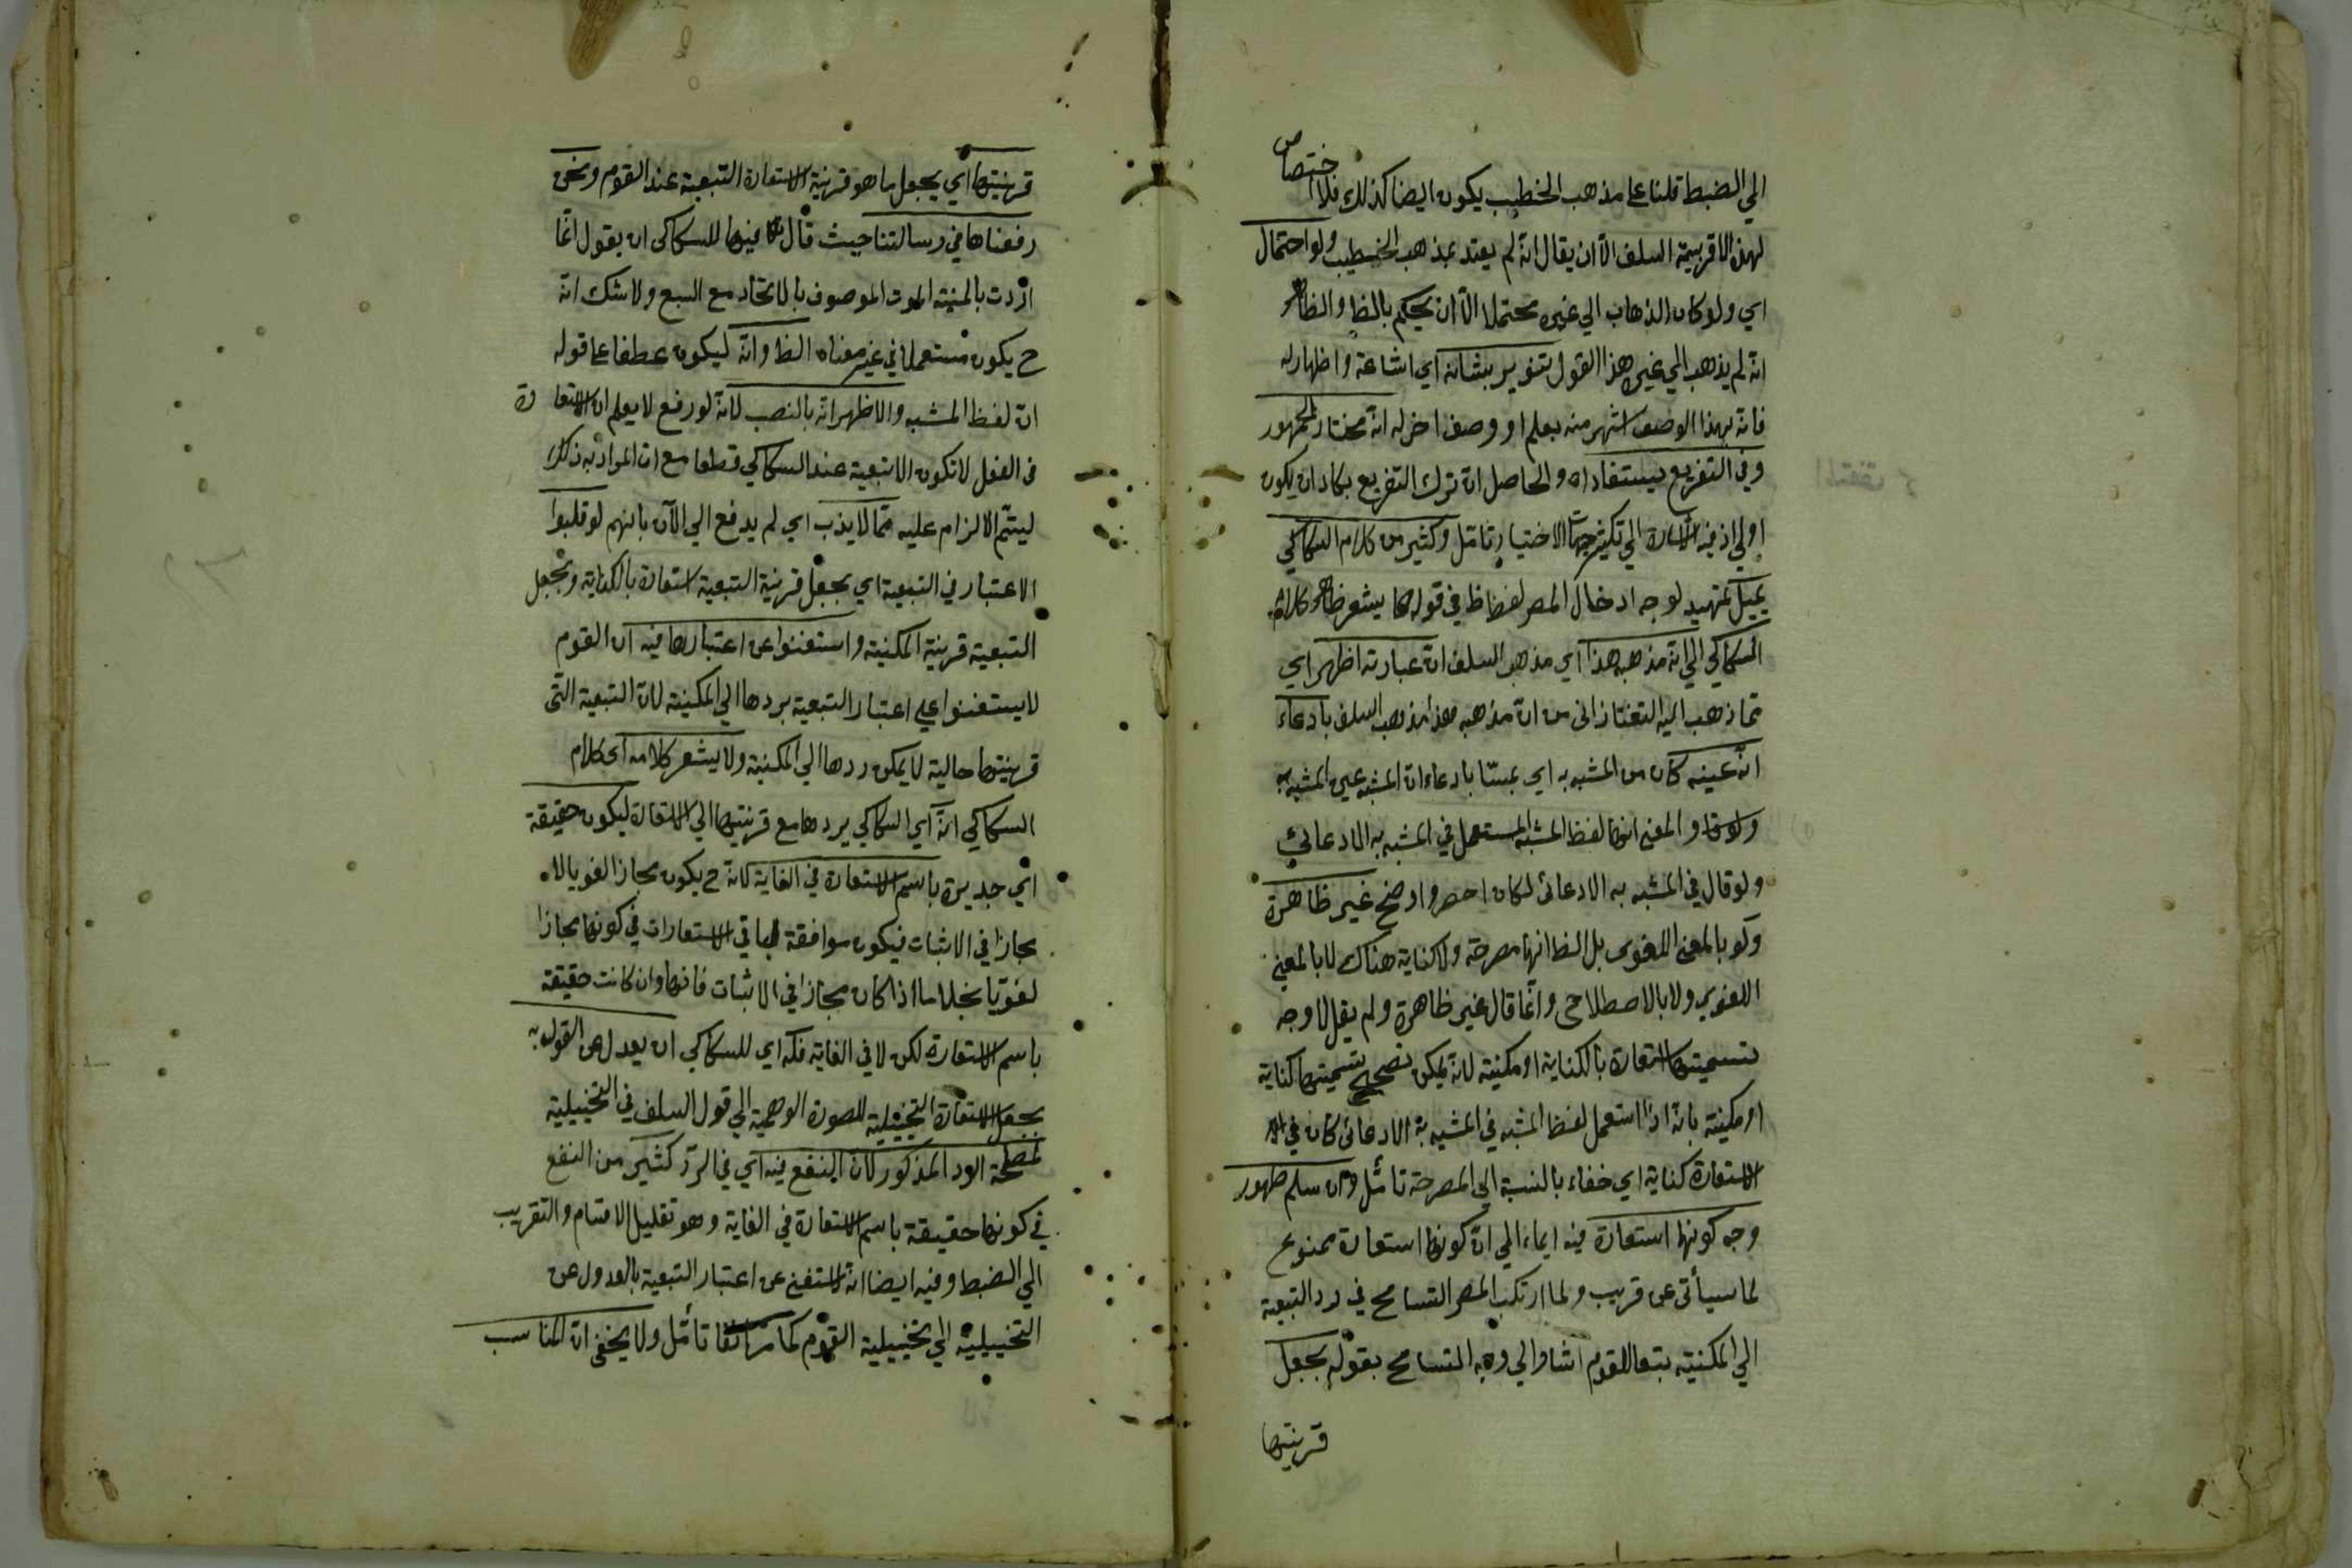 الي الضبط قلنا على مذهب الخطيب يكون ايضا كذلك فلا اختصاص
لهذه الاقربية السلف الا ان يقال انه لم يعتد بمذهب الخطيب ولو احتمال
اي ولو كان الذهاب الي غيره محتملا الا ان يحكم بالظ والظاهر
انه لم يذهب الي غير هذا القول تنوير بشانه اي اشاعة واظهار له
فانه بهذا الوصف اشهر منه بعلم او وصف اخر له انه مختار الجمهور
وفي التفريع يستفاد اه والحاصل ان ترك التفريع بكاد ان يكون
اولي اذ فيه اشارة الي تكثير جهات الاختيار تامل وكثير من كلام السكاكي
يميل تمهيد لوجه ادخال المص لفظ ظ في قوله كما يشعر ظاهر كلام
السكاكي الي انه مذهبه هذا اي مذهب السلف ان عبارته اظهر اي
مما ذهب اليه التفتازاني من ان مذهبه هذا مذهب السلف بادعاء
انه عينه كان من المشبه به اي بمتنا بادعاء ان المشبه عين المشبه به
والمعني انها لفظ المشبه المستعمل في المشبه به الادعائي
ولو قال في المشبه به الادعائي لكان احصر واوضح غير ظاهرة
ولو بالمعني اللغوي بل الظ انها مصرحة ولا كناية هناك لا بالمعني
اللغوي ولا بالاصطلاحي وانما قال غير ظاهرة ولم يقل لا وجه
تسميتها استعارة بالكناية او مكنية لانه يمكن تصحيح تسميتها كناية
او مكنية بانه اذا استعمل لفظ المشبه في المشبه به الادعائي كان في
الاستعارة كناية اي خفاء بالنسبة الي المصرحة تامل وان سلم ظهور
وجه كونها استعارة فيه ايماء الي ان كونها استعارة ممنوع
لما سيأتي عن قريب ولما ارتكب المص التسامح في رد التبعية
الي المكنية تبعا للقوم اشار الي وجه التسامح بقوله بجعل
قرينتها
قرينتها اي يجعل ما هو قرينة الاستعارة التبعية عند القوم ونحن
رفعناها في رسالتنا حيث قال فيها للسكاكي ان يقول انما
اردت بالمنية الموت الموصوف بالاتحاد مع السبع ولا شك انه
ح يكون مستعملا في غير معناه الظ وانه ليكون عطفا على قوله
ان لفظ المشبه والاظهر انه بالنصب لانه لو رفع لا يعلم ان الاستعارة
في الفعل لا تكون الا تبعية عند السكاكي قطعا مع ان المراد به ذلك
ليتم الالزام عليه مما لا يذب اي لم يدفع الي الآن بانهم لو قلبوا
الاعتبار في التبعية اي بجعل قرينة التبعية استعارة بالكناية وبجعل
التبعية قرينة المكنية واستغنوا عن اعتبارها فيه ان القوم
لا يستغنوا على اعتبار التبعية بردها الي المكنية لان التبعية التي
قرينتها حالية لا يمكن ردها الي المكنية ولا يشعر كلامه اي كلام
السكاكي انه اي السكاكي يردها مع قرينتها الي الاستعارة ليكون حقيقة
اي جديرة باسم الاستعارة في الغاية لانه ح يكون مجازا لغويا لا
مجازا في الاثبات فيكون موافقة لباقي الاستعارات في كونها مجازا
لغويا بخلاف ما اذا كان مجازا في الاثبات فانها وان كانت حقيقة
باسم الاستعارة لكن لا في الغاية فله اي للسكاكي ان يعدل عن القول به
بجعل الاستعارة التخييلية للصورة الوهمية الي قول السلف في التخييلية
لمصلحة الرد المذكور لان النفع فيه اي في الرد كثير من النفع
في كونها حقيقة باسم الاستعارة في الغاية وهو تقليل الاقسام والتقريب
الي الضبط وفيه ايضا انه استغني عن اعتبار التبعية بالعدول عن
التخييلية الي تخييلية القوم كما مر انفا تأمل ولا يخفى ان المناسب